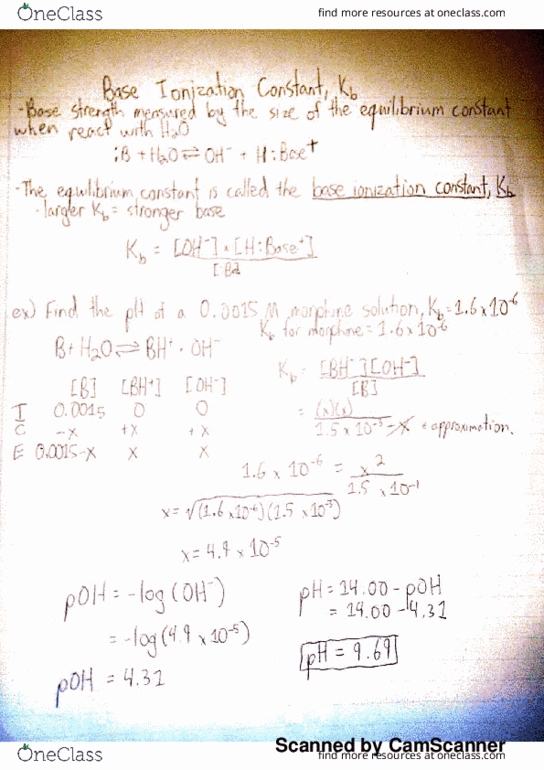 OneClass
find more resources at oneclass.com
Base Ionization Constant, Kb
- Base strength measured by the size of the equilibrium constant
when react with H2O
:B + H2O ⇌ OH⁻ + H:Base⁺
- The equilibrium constant is called the base ionization constant, Kb
- larger Kb = stronger base
Kb = [OH⁻] × [H:Base⁺]
[:B]
ex) Find the pH of a 0.0015 M morphine solution, Kb = 1.6 x 10⁻⁶
Kb for morphine = 1.6 x 10⁻⁶
B + H2O ⇌ BH⁺ + OH⁻
Kb = [BH⁺][OH⁻]
[B]
[B] [BH⁺] [OH⁻]
I 0.0015 0 0
C -x +x +x
E 0.0015-x x x
= (x)(x)
1.5 x 10⁻³ - x ← approximation.
1.6 x 10⁻⁶ = x²
1.5 x 10⁻
x = √(1.6 x 10⁻⁶)(1.5 x 10⁻³)
x = 4.9 x 10⁻⁵
pOH = -log(OH⁻)
= -log(4.9 x 10⁻⁵)
pOH = 4.31
pH = 14.00 - pOH
= 14.00 - 4.31
pH = 9.69
Scanned by CamScanner
OneClass
find more resources at oneclass.com